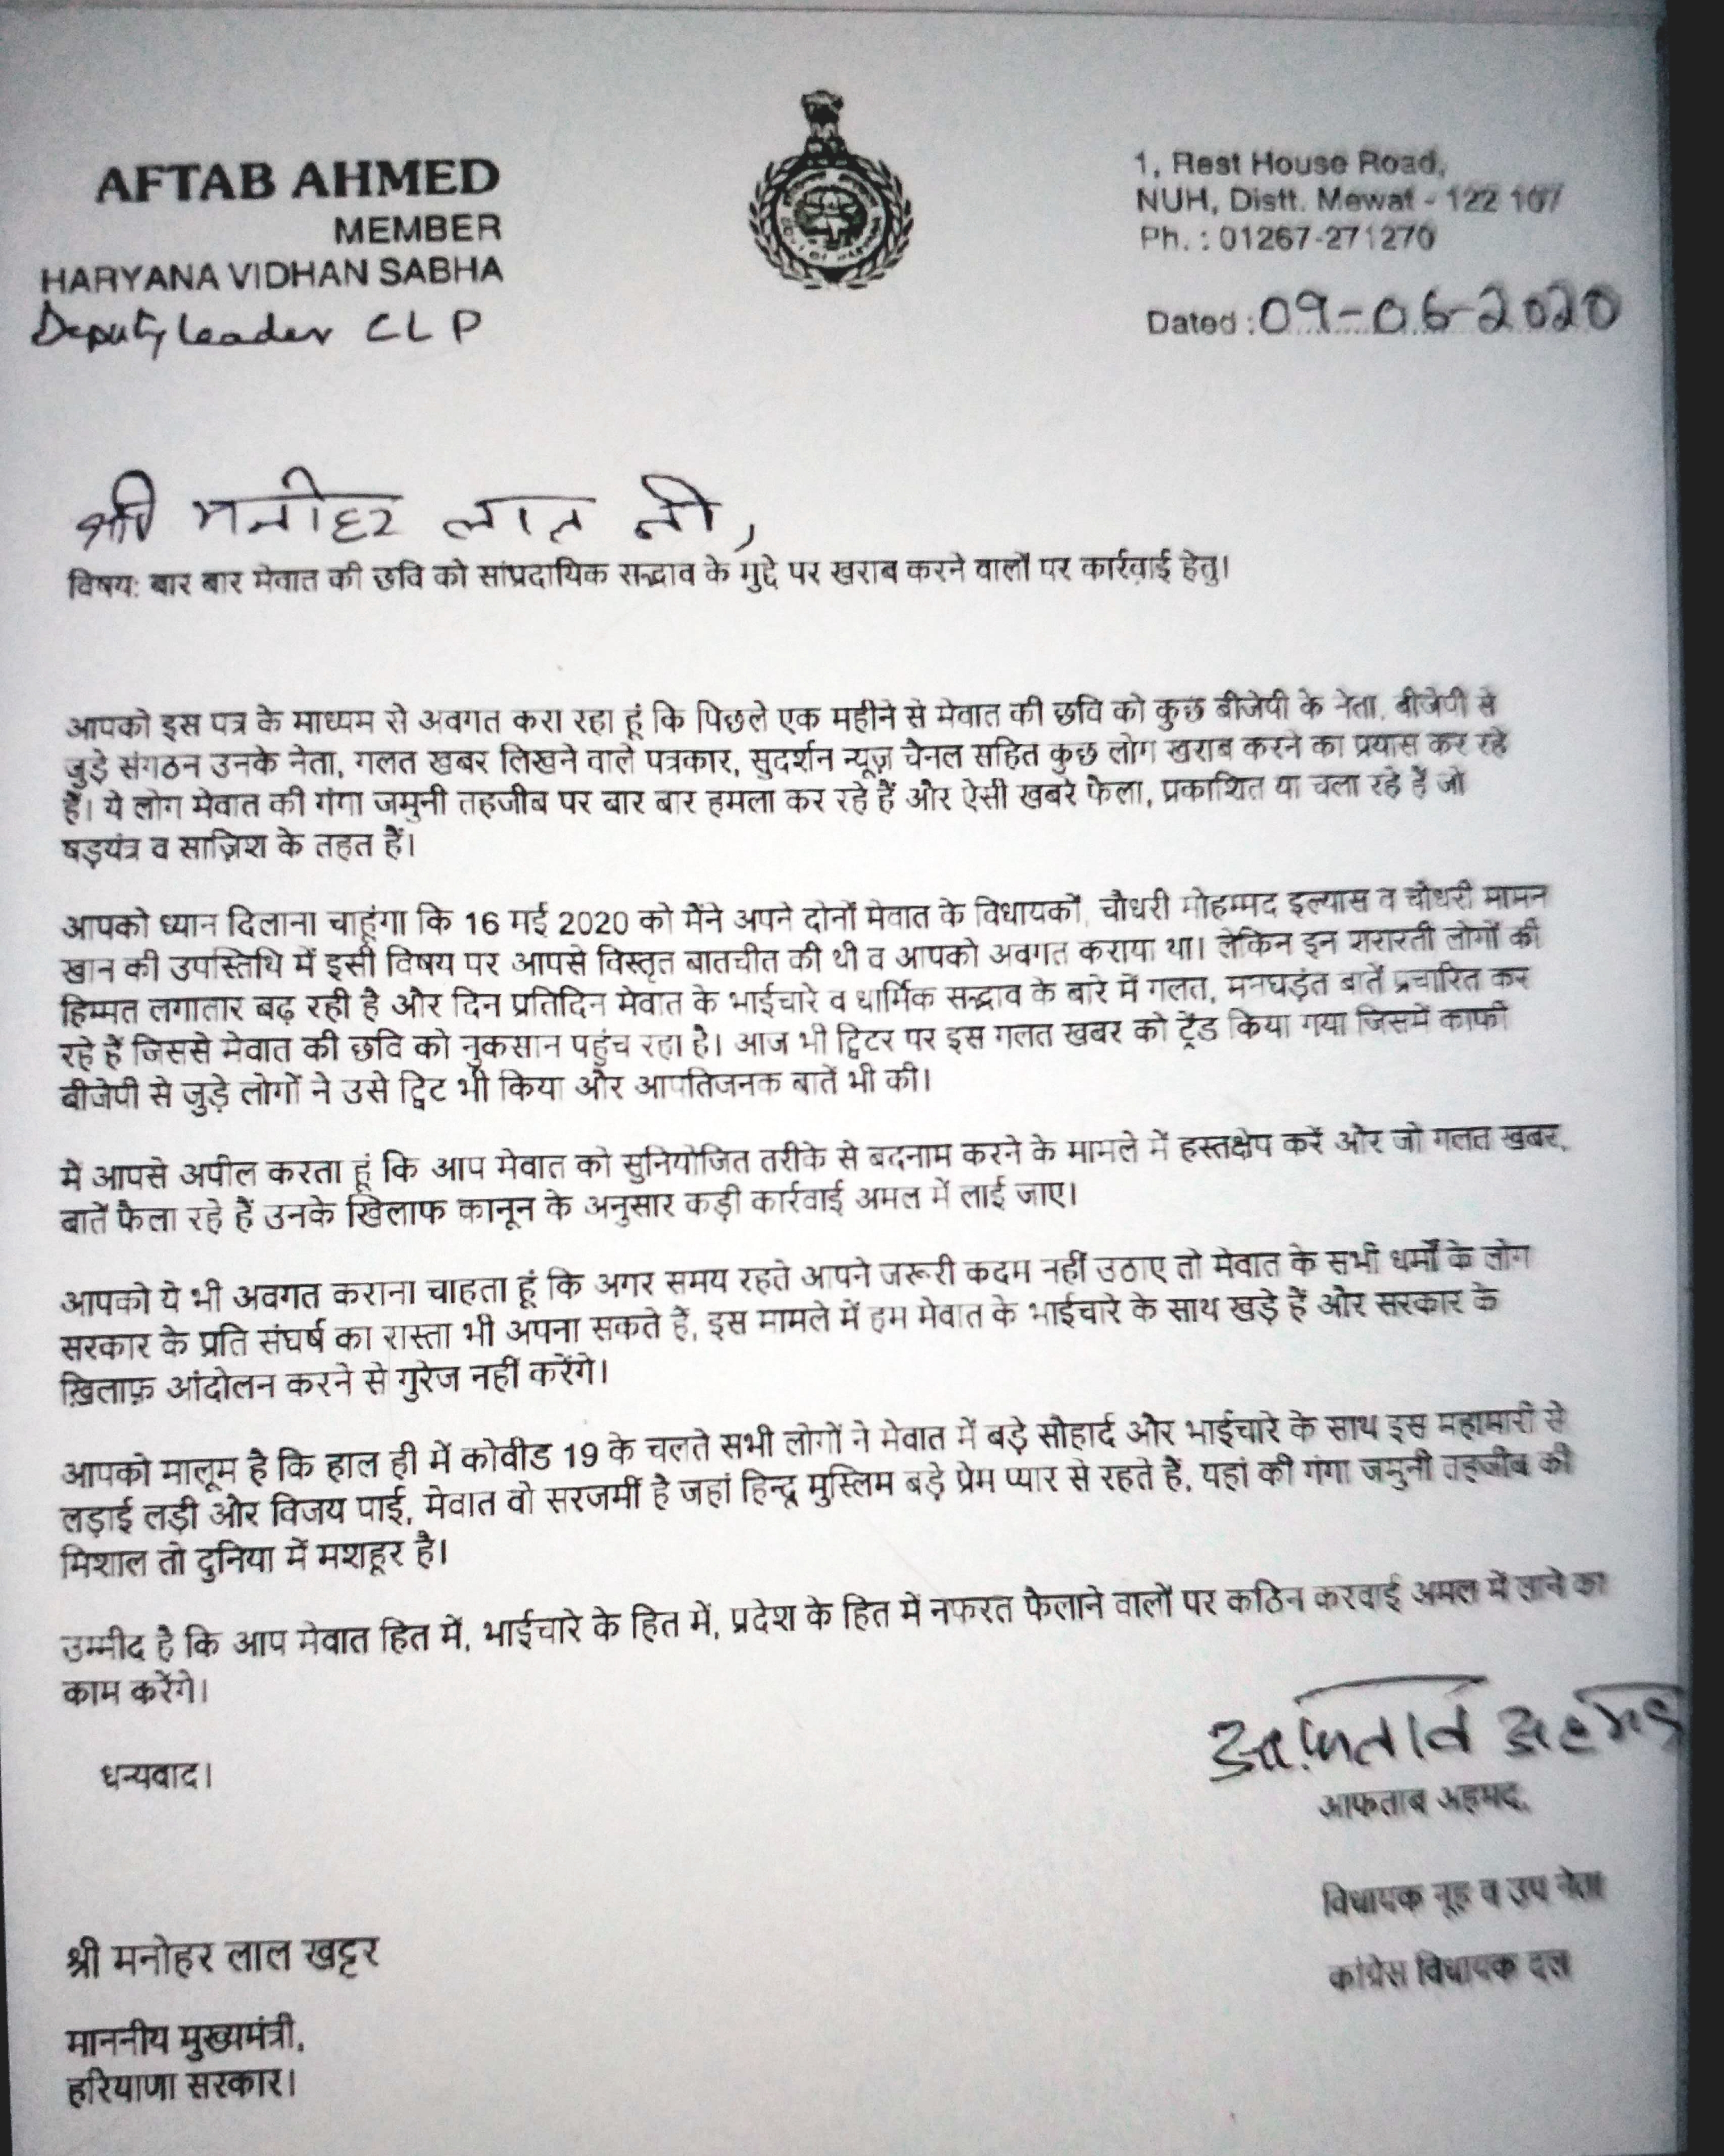 AFTAB AHMED
MEMBER
HARYANA VIDHAN SABHA
Deputy leader CLP
1, Rest House Road,
NUH, Distt. Mewat - 122 107
Ph. : 01267-271270
Dated : 09-06-2020
श्री मनोहर लाल जी,
विषय: बार बार मेवात की छवि को सांप्रदायिक सद्भाव के मुद्दे पर खराब करने वालों पर कार्रवाई हेतु।
आपको इस पत्र के माध्यम से अवगत करा रहा हूं कि पिछले एक महीने से मेवात की छवि को कुछ बीजेपी के नेता, बीजेपी से
जुड़े संगठन उनके नेता, गलत खबर लिखने वाले पत्रकार, सुदर्शन न्यूज़ चैनल सहित कुछ लोग खराब करने का प्रयास कर रहे
हैं। ये लोग मेवात की गंगा जमुनी तहजीब पर बार बार हमला कर रहे हैं और ऐसी खबरे फैला, प्रकाशित या चला रहे हैं जो
षड़यंत्र व साज़िश के तहत हैं।
आपको ध्यान दिलाना चाहूंगा कि 16 मई 2020 को मैंने अपने दोनों मेवात के विधायकों, चौधरी मोहम्मद इल्यास व चौधरी मामन
खान की उपस्तिथि में इसी विषय पर आपसे विस्तृत बातचीत की थी व आपको अवगत कराया था। लेकिन इन शरारती लोगों की
हिम्मत लगातार बढ़ रही है और दिन प्रतिदिन मेवात के भाईचारे व धार्मिक सद्भाव के बारे में गलत, मनघड़ंत बातें प्रचारित कर
रहे हैं जिससे मेवात की छवि को नुकसान पहुंच रहा है। आज भी ट्विटर पर इस गलत खबर को ट्रेंड किया गया जिसमें काफी
बीजेपी से जुड़े लोगों ने उसे ट्विट भी किया और आपतिजनक बातें भी की।
में आपसे अपील करता हूं कि आप मेवात को सुनियोजित तरीके से बदनाम करने के मामले में हस्तक्षेप करें और जो गलत खबर,
बातें फैला रहे हैं उनके खिलाफ कानून के अनुसार कड़ी कार्रवाई अमल में लाई जाए।
आपको ये भी अवगत कराना चाहता हूं कि अगर समय रहते आपने जरूरी कदम नहीं उठाए तो मेवात के सभी धर्मों के लोग
सरकार के प्रति संघर्ष का रास्ता भी अपना सकते हैं, इस मामले में हम मेवात के भाईचारे के साथ खड़े हैं और सरकार के
ख़िलाफ़ आंदोलन करने से गुरेज नहीं करेंगे।
आपको मालूम है कि हाल ही में कोवीड 19 के चलते सभी लोगों ने मेवात में बड़े सौहार्द और भाईचारे के साथ इस महामारी से
लड़ाई लड़ी और विजय पाई, मेवात वो सरजमीं है जहां हिन्दू मुस्लिम बड़े प्रेम प्यार से रहते हैं, यहां की गंगा जमुनी तहजीब की
मिशाल तो दुनिया में मशहूर है।
उम्मीद है कि आप मेवात हित में, भाईचारे के हित में, प्रदेश के हित में नफरत फैलाने वालों पर कठिन करवाई अमल में लाने का
काम करेंगे।
धन्यवाद।
आफताब अहमद
आफताब अहमद,
विधायक नूह व उप नेता
कांग्रेस विधायक दल
श्री मनोहर लाल खट्टर
माननीय मुख्यमंत्री,
हरियाणा सरकार।